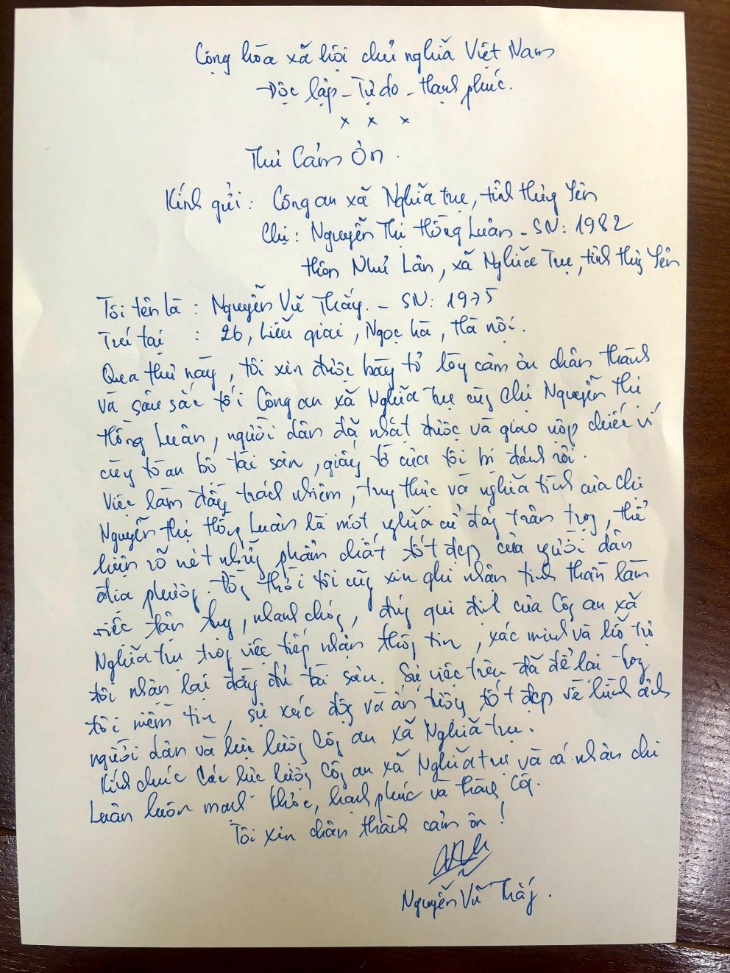 Cộng hòa xã hội chủ nghĩa Việt Nam
Độc lập - Tự do - Hạnh phúc.
x x x
Thư Cảm Ơn.
Kính gửi: Công an xã Nghĩa trụ, tỉnh Hưng Yên
Chị: Nguyễn Thị Hồng Luân - SN: 1982
thôn Như Lân, xã Nghĩa Trụ, tỉnh Hưng Yên
Tôi tên là: Nguyễn Vũ Thắng. - SN: 1975
Trú tại : 26, Liễu giai, Ngọc hà, Hà nội.
Qua thư này, tôi xin được bày tỏ lòng cảm ơn chân thành
và sâu sắc tới Công an xã Nghĩa trụ cùng Chị Nguyễn Thị
Hồng Luân, người dân đã nhặt được và giao nộp chiếc ví
cùng toàn bộ tài sản, giấy tờ của tôi bị đánh rơi.
Việc làm đầy trách nhiệm, trung thực và nghĩa tình của chị
Nguyễn thị Hồng Luân là một nghĩa cử đáng trân trọng, thể
hiện rõ nét những phẩm chất tốt đẹp của người dân
địa phương. Đồng thời tôi cũng xin ghi nhận tinh thần làm
việc tận tụy, nhanh chóng, đúng qui định của Công an xã
Nghĩa trụ trong việc tiếp nhận thông tin, xác minh và hỗ trợ
tôi nhận lại đầy đủ tài sản. Sự việc trên đã để lại trong
tôi niềm tin, sự xúc động và ấn tượng tốt đẹp về hình ảnh
người dân và lực lượng Công an xã Nghĩa trụ.
Kính chúc các lực lượng Công an xã Nghĩa trụ và cá nhân chị
Luân luôn mạnh khỏe, hạnh phúc và thành công.
Tôi xin chân thành cảm ơn!
Nguyễn Vũ Thắng.